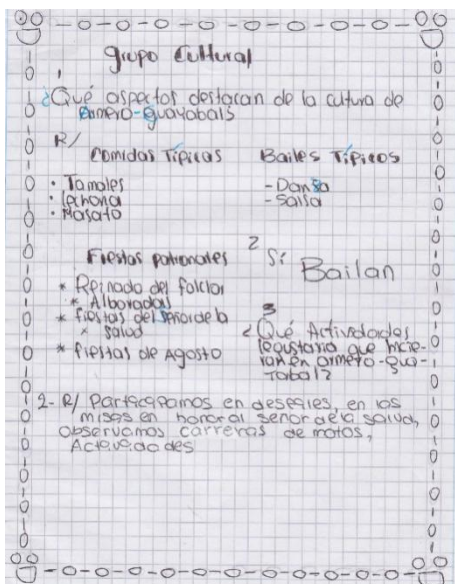 Grupo Cultural
1
¿Qué aspectos destacan de la cultura de
Armero-Guayabals
R/
Comidas Típicas
· Tamales
· Lechona
· Masato
Bailes Típicos
- Danza
- Salsa
Fiestas patronales
* Reinado del folclor
* Alboradas
* fiestas del Señor de la
* salud
* fiestas de Agosto
2 Si
Bailan
3
¿Qué Actividades
le gustaria que hicie-
ran en armero-gua-
yabal?
2- R/ Participamos en desfiles, en las
misas en honor al señor de la salud,
observamos carreras de motos,
Actividades